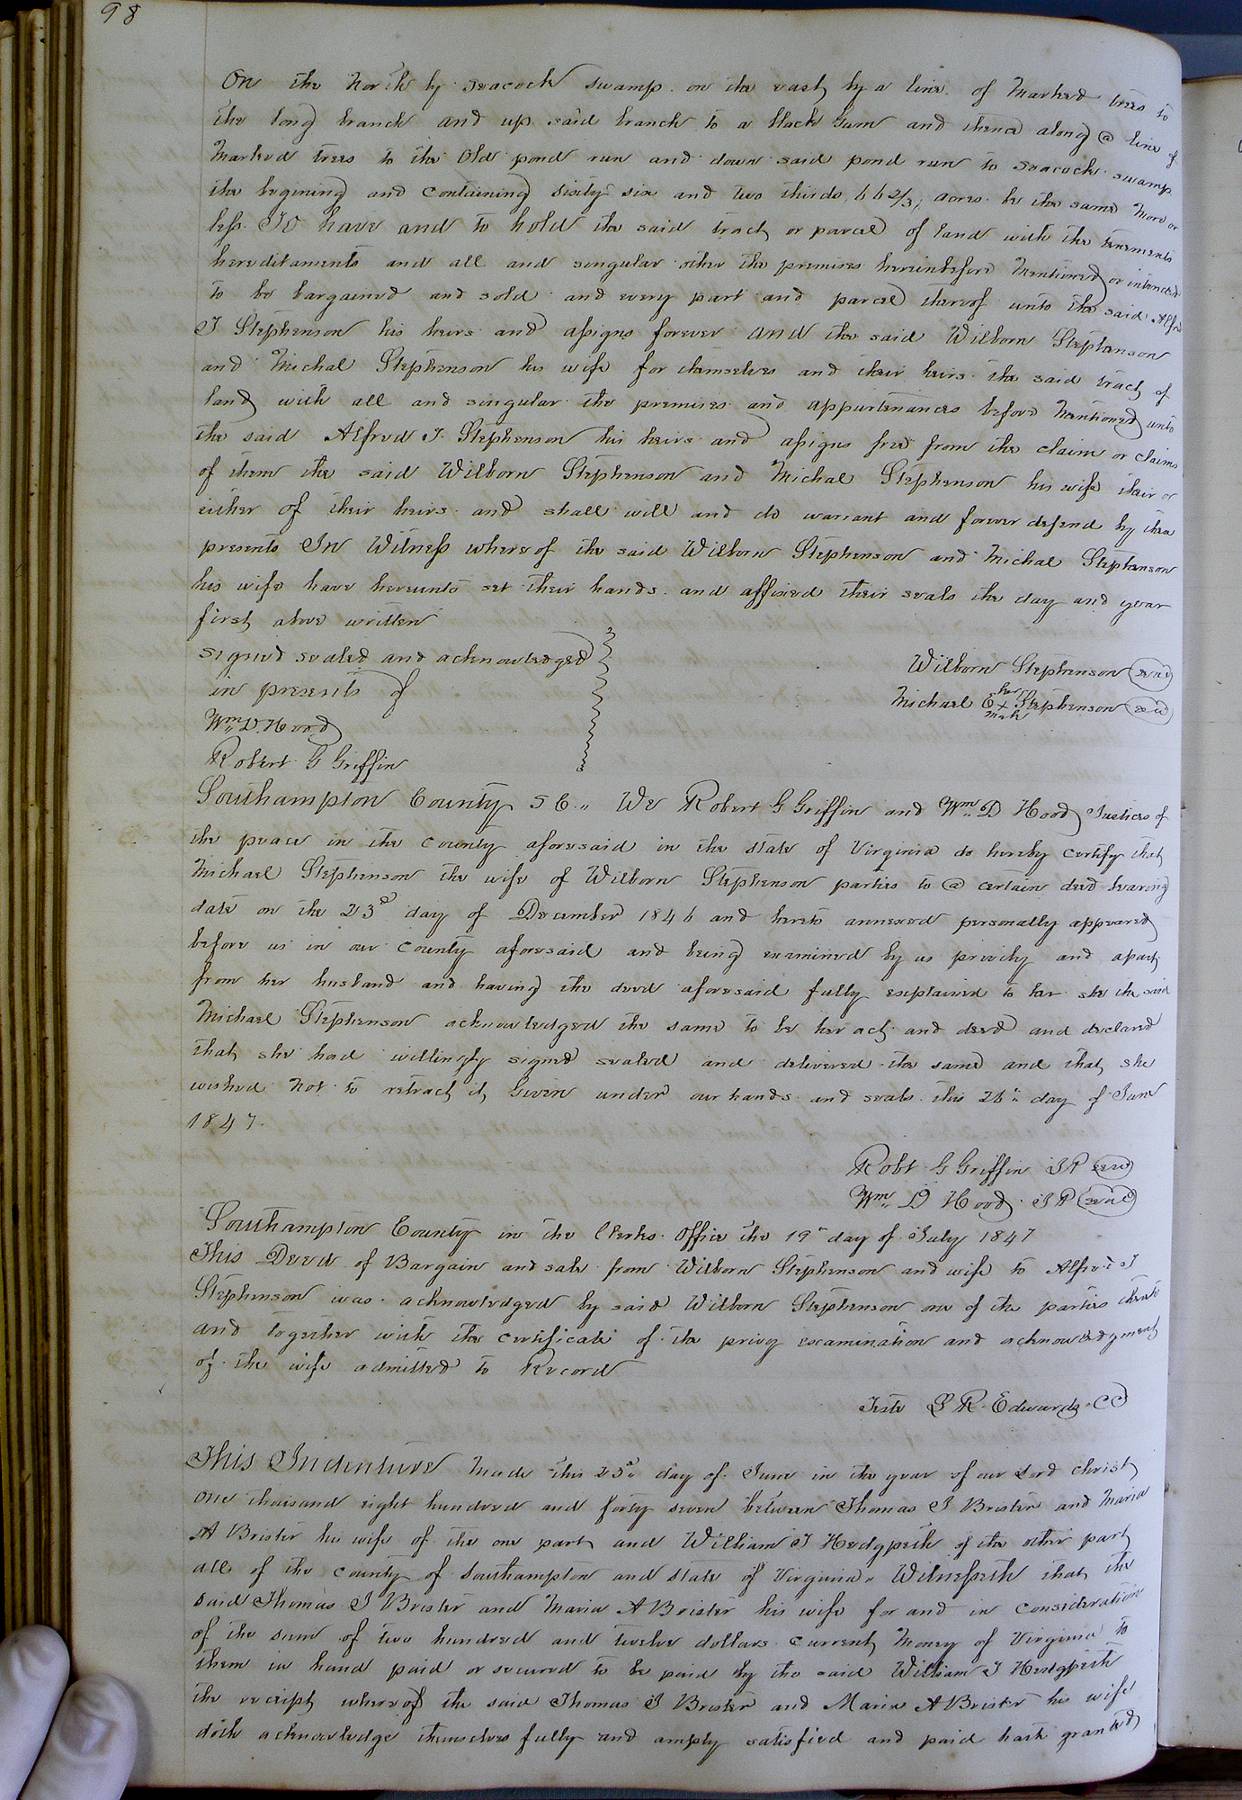 98
On the North by Seacock swamp on the east by a line of Marked trees to
the long branch and up said branch to a black Gum and thence along a line of
Marked trees to the Old pond run and down said pond run to Seacock swamp
the begining and containing sixty six and two thirds, 66 2/3, acres be the same More or
less To have and to hold the said tract or parcel of land with the tenements
hereditaments and all and singular other the premises hereinbefore Mentioned or intended
to be bargained and sold and every part and parcel thereof unto the said Alfred
J Stephenson his heirs and assigns forever and the said Wilborn Stephenson
and Michal Stephenson his wife for themselves and their heirs the said tract of
land with all and singular the premises and appurtenances before Mentioned unto
the said Alfred J. Stephenson his heirs and assigns free from the claim or claims
of them the said Wilborn Stephenson and Michal Stephenson his wife their or
either of their heirs and shall will and do warrant and forever defend by these
presents In Witness whereof the said Wilborn Stephenson and Michal Stephenson
his wife have hereunto set their hands and affixed their seals the day and year
first above written
signed sealed and acknowledged
in presents of
Wm D. Hood
Robert G Griffin
Wilborn Stephenson seal
her
Michael E x Stephenson seal
mark
Southampton County S C., We Robert G Griffin and Wm D Hood Justices of
the peace in the County aforesaid in the state of Virginia do hereby certify that
Michael Stephenson the wife of Wilborn Stephenson parties to a certain deed bearing
date on the 23d day of December 1846 and hereto annexed personally appeared
before us in our County aforesaid and being examined by us privily and apart
from her husband and having the deed aforesaid fully explained to her she the said
Michael Stephenson acknowledged the same to be her act and deed and declared
that she had willingly signed sealed and delivered the same and that she
wished not to retract it Given under our hands and seals this 26th day of June
1847.
Robt G Griffin JP seal
Wm D Hood JP seal
Southampton County in the Clerks Office the 19th day of July 1847
This Deed of Bargain and sale from Wilborn Stephenson and wife to Alfred J
Stephenson was acknowledged by said Wilborn Stephenson one of the parties thereto
and together with the certificate of the privy examination and acknowledgment
of the wife admitted to Record
Teste L R Edwards CC
This Indenture Made this 25th day of June in the year of our Lord Christ
one thousand eight hundred and forty seven between Thomas J Brister and Maria
A Brister his wife of the one part and William J Hedgpeth of the other part
all of the county of Southampton and state of Virginia Witnesseth that the
said Thomas J Brister and Maria A Brister his wife for and in consideration
of the sum of two hundred and twelve dollars current Money of Virginia to
them in hand paid or secured to be paid by the said William J Hedgpeth
the receipt whereof the said Thomas J Brister and Maria A Brister his wife
doth acknowledge themselves fully and amply satisfied and paid hath granted